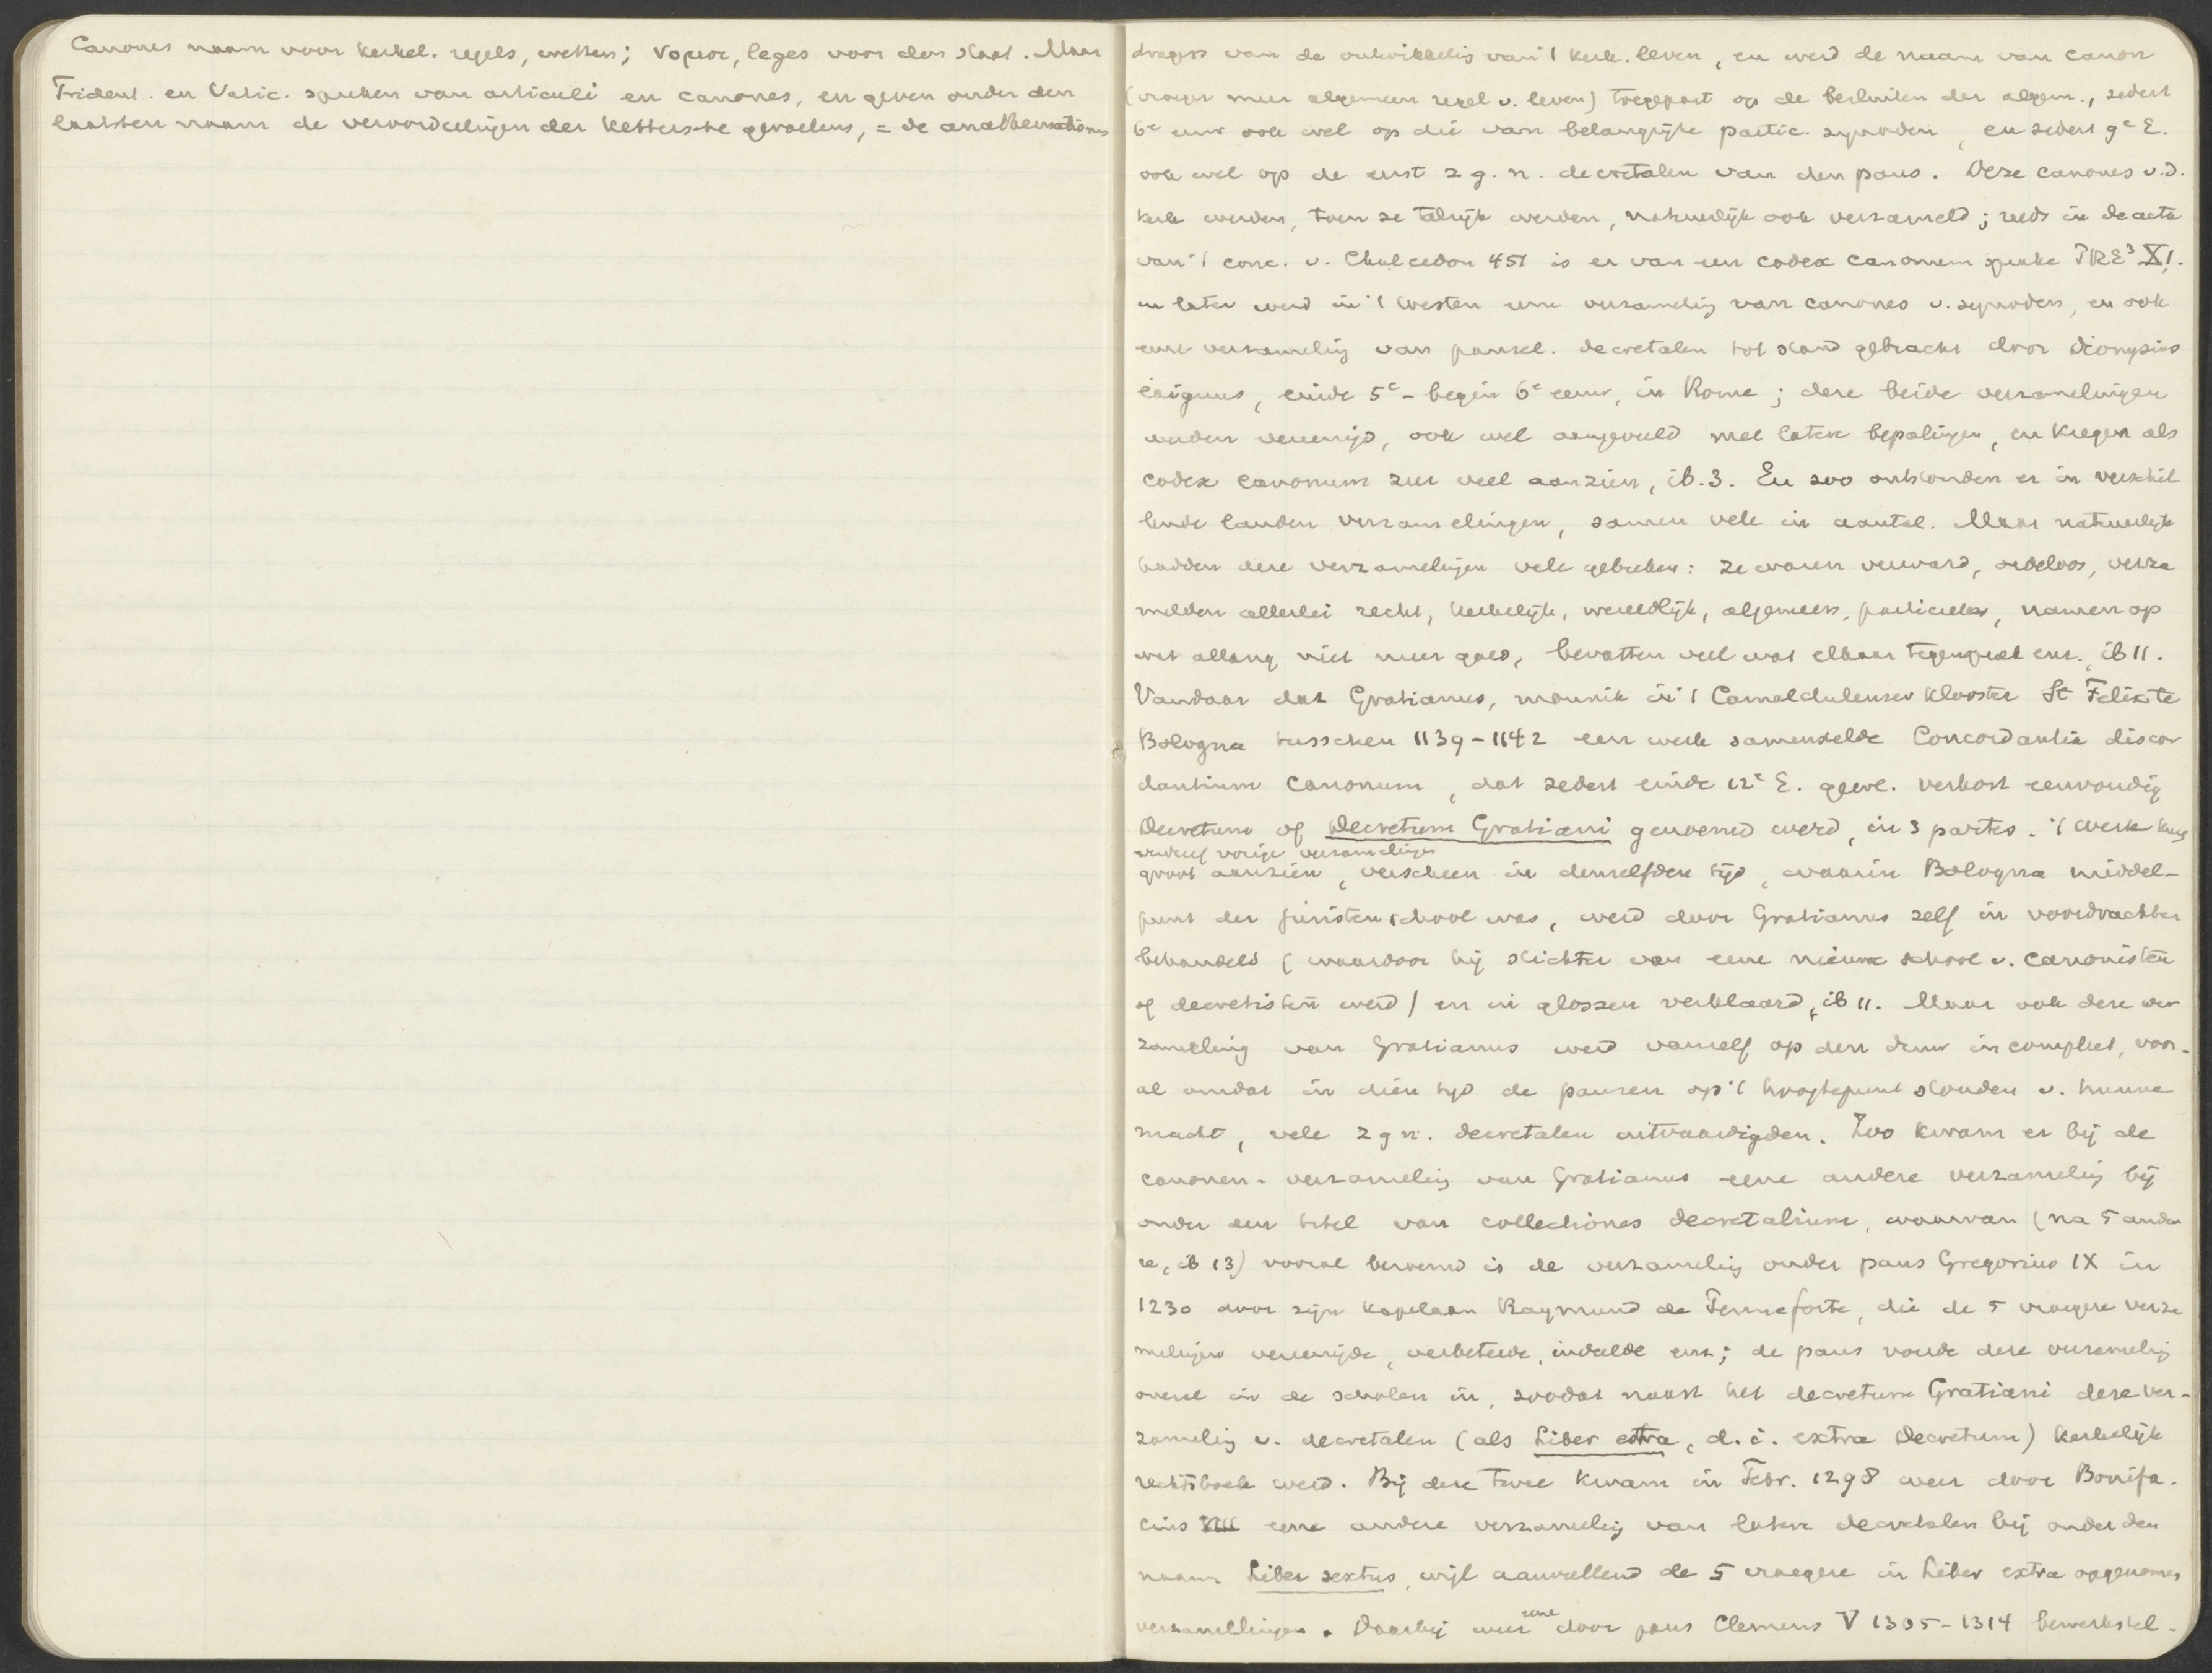 Canones naam voor kerkel. regels, wetten; νομοι, leges voor den staat. Maar
Trident. en Vatic. spreken van articuli en canones, en geven onder den
laatsten naam de veroordeelingen der kettersche gevoelens, = de anathematismi
dragers van de ontwikkelig van 't kerk. leven, en werd de naam van canon
(vroeger meer algemeen regel v. leven) toegepast op de besluiten der algem., sedert
6e eeuw ook wel op die van belangrijke partic. synoden, en sedert 9e E.
ook wel op de eerst z g. n. decretalen van den paus. Deze canones v.d.
kerk werden, toen ze talrijk werden, natuurlijk ook verzameld; reeds in de acta
van 't conc. v. Chalcedon 451 is er van een codex canonum sprake PRE³ X,1.
en later werd in 't westen eene verzamelig van canones v. synoden, en ook
eene verzamelig van pausel. decretalen tot stand gebracht door Dionysius
exiguus, einde 5e - begin 6e eeuw, in Rome; deze beide verzamelingen
werden vereenigd, ook wel aangevuld met latere bepalingen, en kregen als
codex canonum zeer veel aanzien, ib. 3. En zoo ontstonden er in verschil
lende landen verzamelingen, samen vele in aantal. Maar natuurlijk
hadden deze verzamelingen vele gebreken: ze waren verward, ordeloos, verza
melden allerlei recht, kerkelijk, wereldlijk, algemeen, particulier, namen op
wat allang niet meer gold, bevatten veel wat elkaar tegensprak enz. ib 11.
Vandaar dat Gratianus, monnik in 't Camaldulenser klooster St Felix te
Bologna tusschen 1139-1142 een werk samenstelde Concordantia discor
dantium canonum, dat sedert einde 12e E. gewl. verkort eenvoudig
Decretum of Decretum Gratiani genoemd werd, in 3 partes. 't Werk kreeg
verdreef vorige verzamelingen
groot aanzien, verscheen in denzelfden tijd, waarin Bologna middel-
punt der juristenschool was, werd door Gratianus zelf in voordrachten
behandeld (waardoor hij stichter van eene nieuwe school v. canonisten
of decretisten werd) en in glossen verklaard, ib 11. Maar ook deze ver
zameling van Gratianus werd vanzelf op den duur incompleet, voor-
al omdat in dien tijd de pausen op 't hoogtepunt stonden v. hunne
macht, vele z g n. decretalen uitvaardigden. Zoo kwam er bij de
canonen-verzamelig van Gratianus eene andere verzamelig bij
onder een titel van collectiones decretalium, waarvan (na 5 ande
re, ib 13) vooral beroemd is de verzamelig onder paus Gregorius IX in
1230 door zijn kapelaan Raymund de Pennaforte, die de 5 vroegere verza
melingen vereenigde, verbeterde, indeelde enz; de paus voerde deze verzamelig
overal in de scholen in, zoodat naast het decretum Gratiani deze ver-
zamelig v. decretalen (als Liber extra, d. i. extra Decretum) kerkelijk
rechtsboek werd. Bij deze twee kwam in Febr. 1298 weer door Bonifa-
cius VIII eene andere verzamelig van latere decretalen bij onder den
naam Liber sextus, wijl aanvullend de 5 vroegere in Liber extra opgenomen
verzamelingen. Daarbij weer eene door paus Clemens V 1305-1314 bewerkstel-